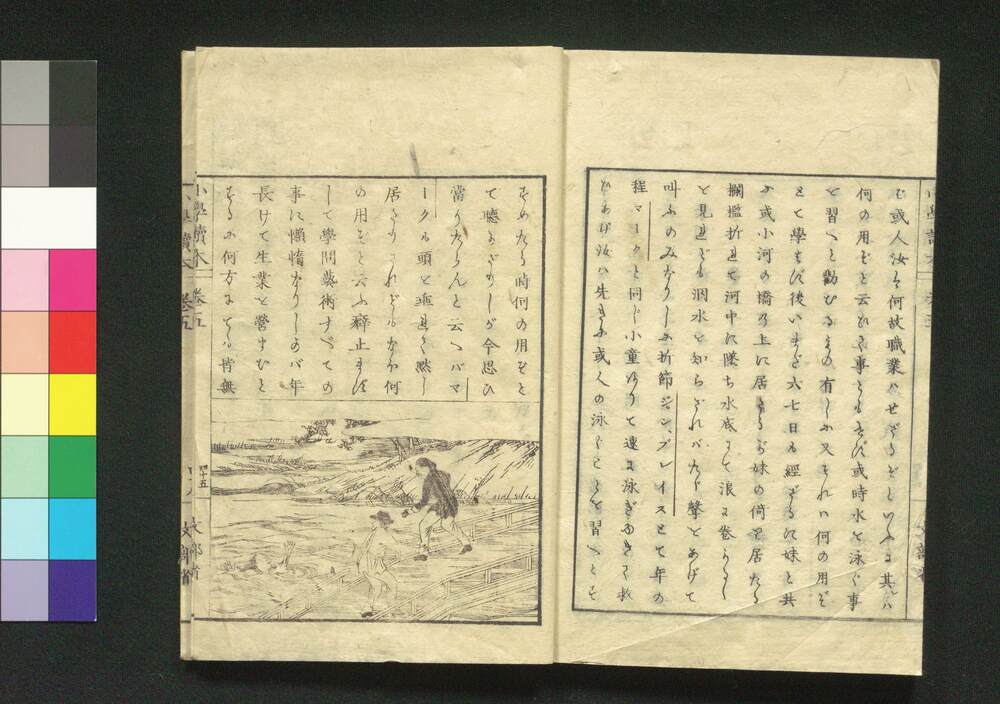 ば或人汝は何故職業ハせざるぞといふに其ハ
何の用ぞと云ひて事ともせず或時水を泳ぐ事
を習へと勸むるもの有しに又それハ何の用ぞ
とて學もせず後いまだ六七日も經ざるに妹と共
に或小河の橋の上に居たるが妹の倚て居たる
欄檻折れて河中に墜ち水底にて浪に卷かるゝ
と見れども泅水を知らざれバたゞ聲をあげて
叫ふのみなりしに折節ジンプレイスとて年の
程マークと同じ小童ありて速に泳ぎゆきて救
ひあげ汝ハ先きに或人の泳ぐことを習へとす
すめたる時何の用ぞと
て聽かざりしが今思ひ
當りたらんと云へバマ
ークハ頭を垂れて默し
居たりされどもなほ何
の用ぞと云ふ癖止まず
して學問藝術すべての
事に懶惰なりしかバ年
長けて生業を營まむと
するに何方にても皆無
小學讀本 卷五
四十五
文部省